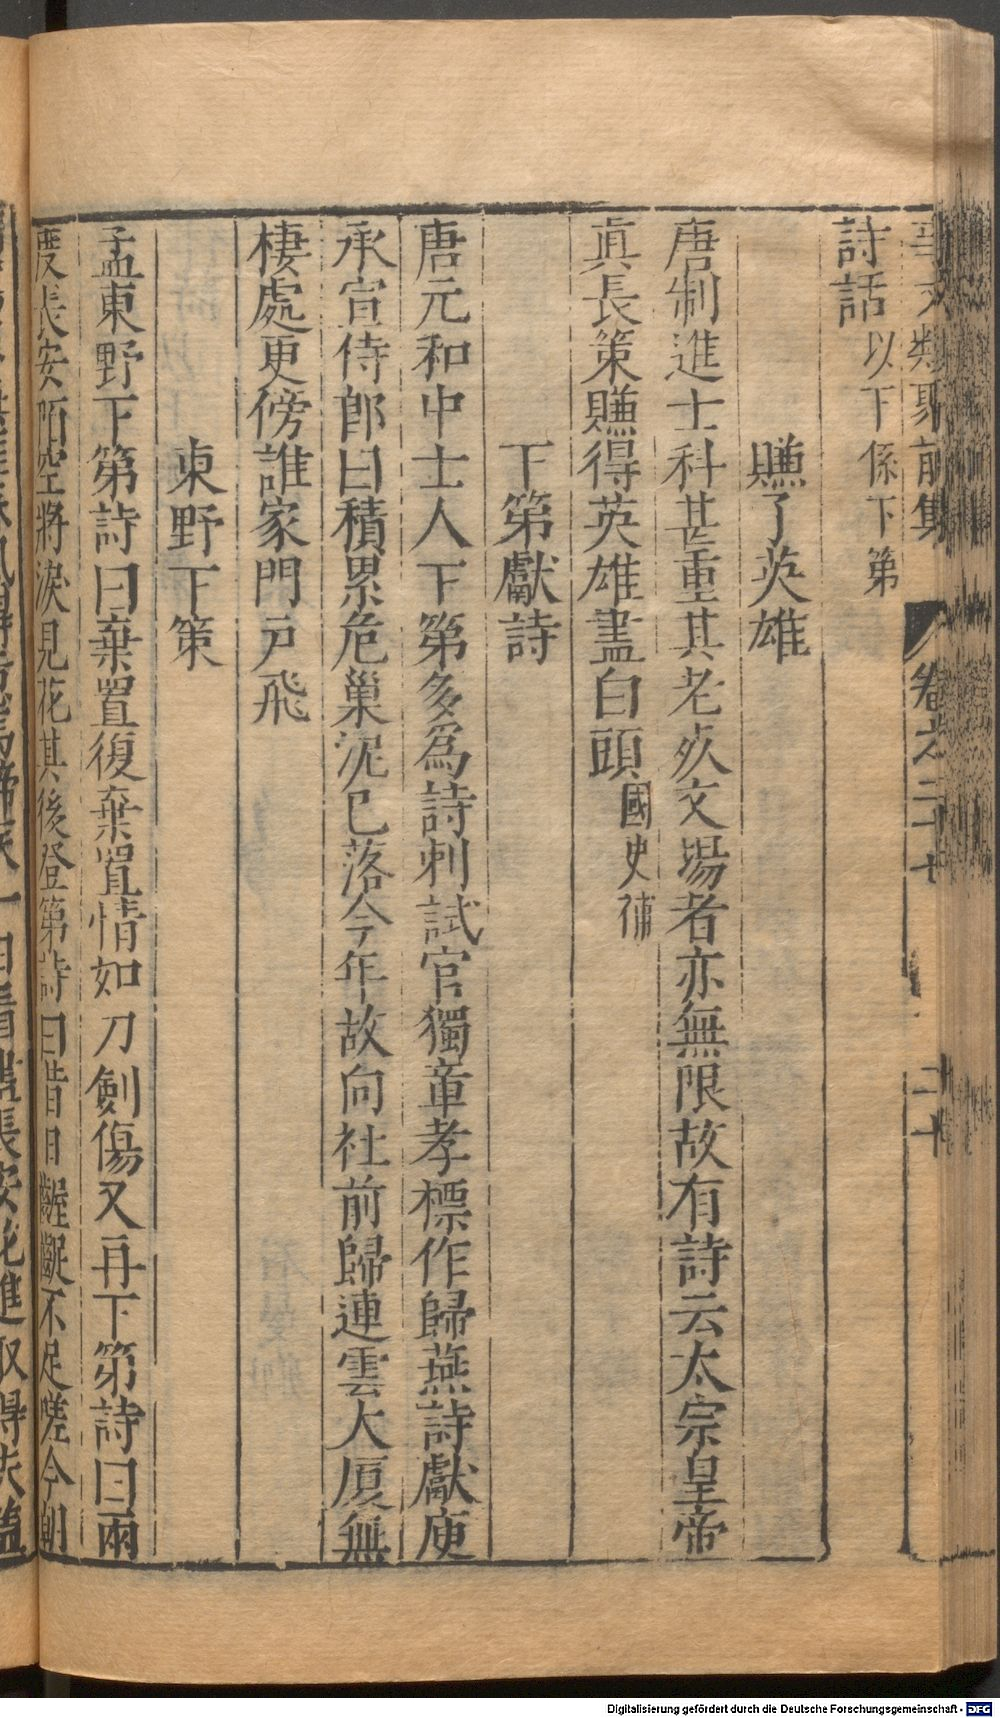 事文類聚前集 卷之二十七 二十
詩話以下係下第
賺了英雄
唐制進士科甚重其老死文場者亦無限故有詩云太宗皇帝
真長策賺得英雄盡白頭國史補
下第獻詩
唐元和中士人下第多爲詩刺試官獨章孝標作歸燕詩獻庾
承宣侍郎曰積累危巢泥已落今年故向社前歸連雲大厦無
棲處更傍誰家門戶飛
東野下策
孟東野下第詩曰棄置復棄置情如刀劍傷又再下第詩曰兩
度長安陌空將淚見花其後登第詩曰昔日齷齪不足嗟今朝
一日看盡長安花進取得失蓋
Digitalisierung gefördert durch die Deutsche Forschungsgemeinschaft - DFG